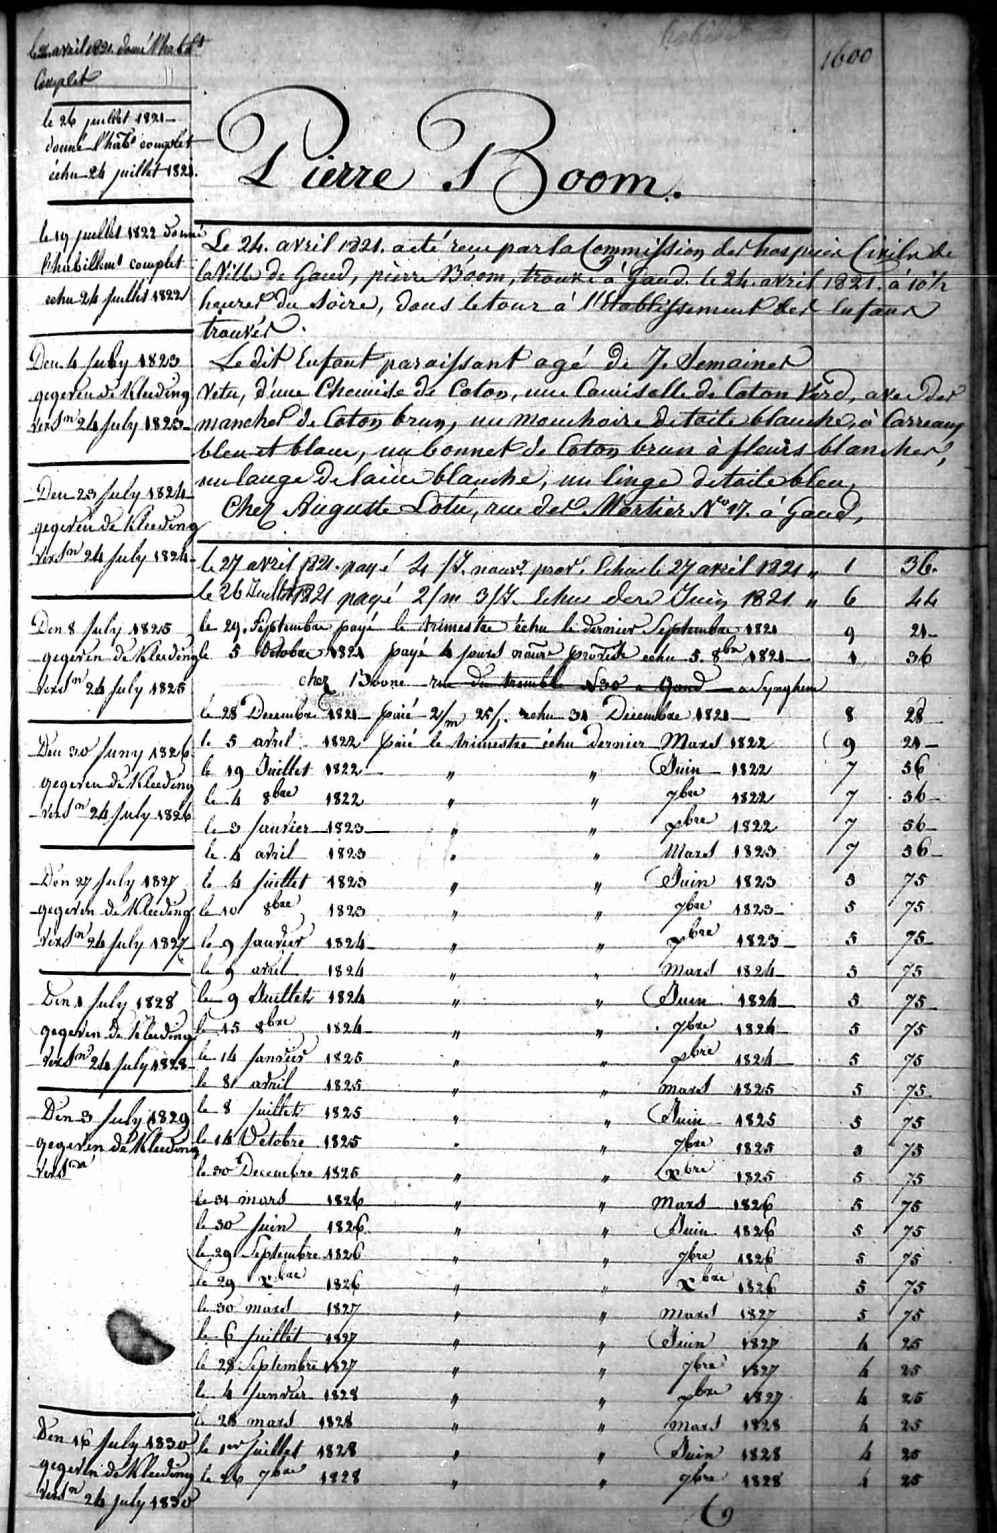 1600
le 24 avril 1821 donné l'habilt
Complet
le 26 juillet 1821
donné l'habt complet
échu 24 juillet 1821.
le 19 juillet 1822 donné
l'habillemt complet
echu 24 juillet 1822
Den 4 July 1823
gegeven de Kleeding
versn 24 July 1823
Den 23 July 1824
gegeven de Kleeding
versn 24 July 1824
Den 8 July 1825
gegeven de Kleeding
versn 24 July 1825
Den 30 Juny 1826
gegeven de Kleeding
versn 24 July 1826
Den 27 July 1827
gegeven de Kleeding
versn 24 July 1827
Den 1 July 1828
gegeven de Kleeding
versn 24 July 1828
Den 3 July 1829
gegeven de Kleeding
versn
Den 16 July 1830
gegeven de Kleeding
versn 24 July 1830
Pierre Boom.
Le 24. avril 1821. a été reçu par la Commission des hospices Civils de
la Ville de Gand, pierre Boom, trouvé à Gand. le 24. avril 1821. à 10 ½
heures du Soire, dans le tour à l'Etablissement des Enfans
trouvés.
Le dit Enfant paraissant agé de 7. Semaines
Vetu, d'une Chemise de Coton, une Camiselle de Coton Verd, avec des
manches de Coton brun, un mouchoire de toile blanche, à Carreaux
bleu et blanc, un bonnet de Coton brun à fleurs blanches,
un lange De laine blanche, un linge de toile bleu,
Chez Auguste Lotu, rue des Mortier No 17. à Gand,
le 27 avril 1821. payé 4 /J. prov. Echu le 27 avril 1821 " 1 36.
le 26 Juillet 1821 payé 2/m 3/J. Echu dere Juin 1821. " 6 44
le 29. Septembre payé le trimestre échu le dernier Septembre 1821 9 21
le 5 Octobre 1821 payé 4 jours echu 5. 8bre 1821 1 36
chez Boone rue du tremble N 30 a Gand a Synghem
le 28 Decembre 1821 paié 2/m 25/j. echu 31 Decembre 1821 8 28
le 5 avril 1822 paié le trimestre échu dernier Mars 1822 9 21
le 19 Juillet 1822 " " Juin 1822 7 56
le 4 8bre 1822 " " 7bre 1822 7 56
le 3 Janvier 1823 " " xbre 1822 7 56
le 4 avril 1823 " " Mars 1823 7 56
le 4 juillet 1823 " " Juin 1823 5 75
le 10 8bre 1823 " " 7bre 1823 5 75
le 9 Janvier 1824 " " xbre 1823 5 75
le 9 avril 1824 " " Mars 1824 5 75
le 9 Juillet 1824 " " Juin 1824 5 75
le 15 8bre 1824 " " 7bre 1824 5 75
le 14 janvier 1825 " " xbre 1824 5 75
le 8 avril 1825 " " mars 1825 5 75
le 8 juillet 1825 " " Juin 1825 5 75
le 14 Octobre 1825 " " 7bre 1825 5 75
le 30 Decembre 1825 " " xbre 1825 5 75
le 31 mars 1826 " " Mars 1826 5 75
le 30 juin 1826 " " Juin 1826 5 75
le 29 Septembre 1826 " " 7bre 1826 5 75
le 29 xbre 1826 " " xbre 1826 5 75
le 30 mars 1827 " " mars 1827 5 75
le 6 juillet 1827 " " Juin 1827 4 25
le 28 Septembre 1827 " " 7bre 1827 4 25
le 4 Janvier 1828 " " xbre 1827 4 25
le 28 mars 1828 " " mars 1828 4 25
le 1er juillet 1828 " " Juin 1828 4 25
le 26 7bre 1828 " " 7bre 1828 4 25